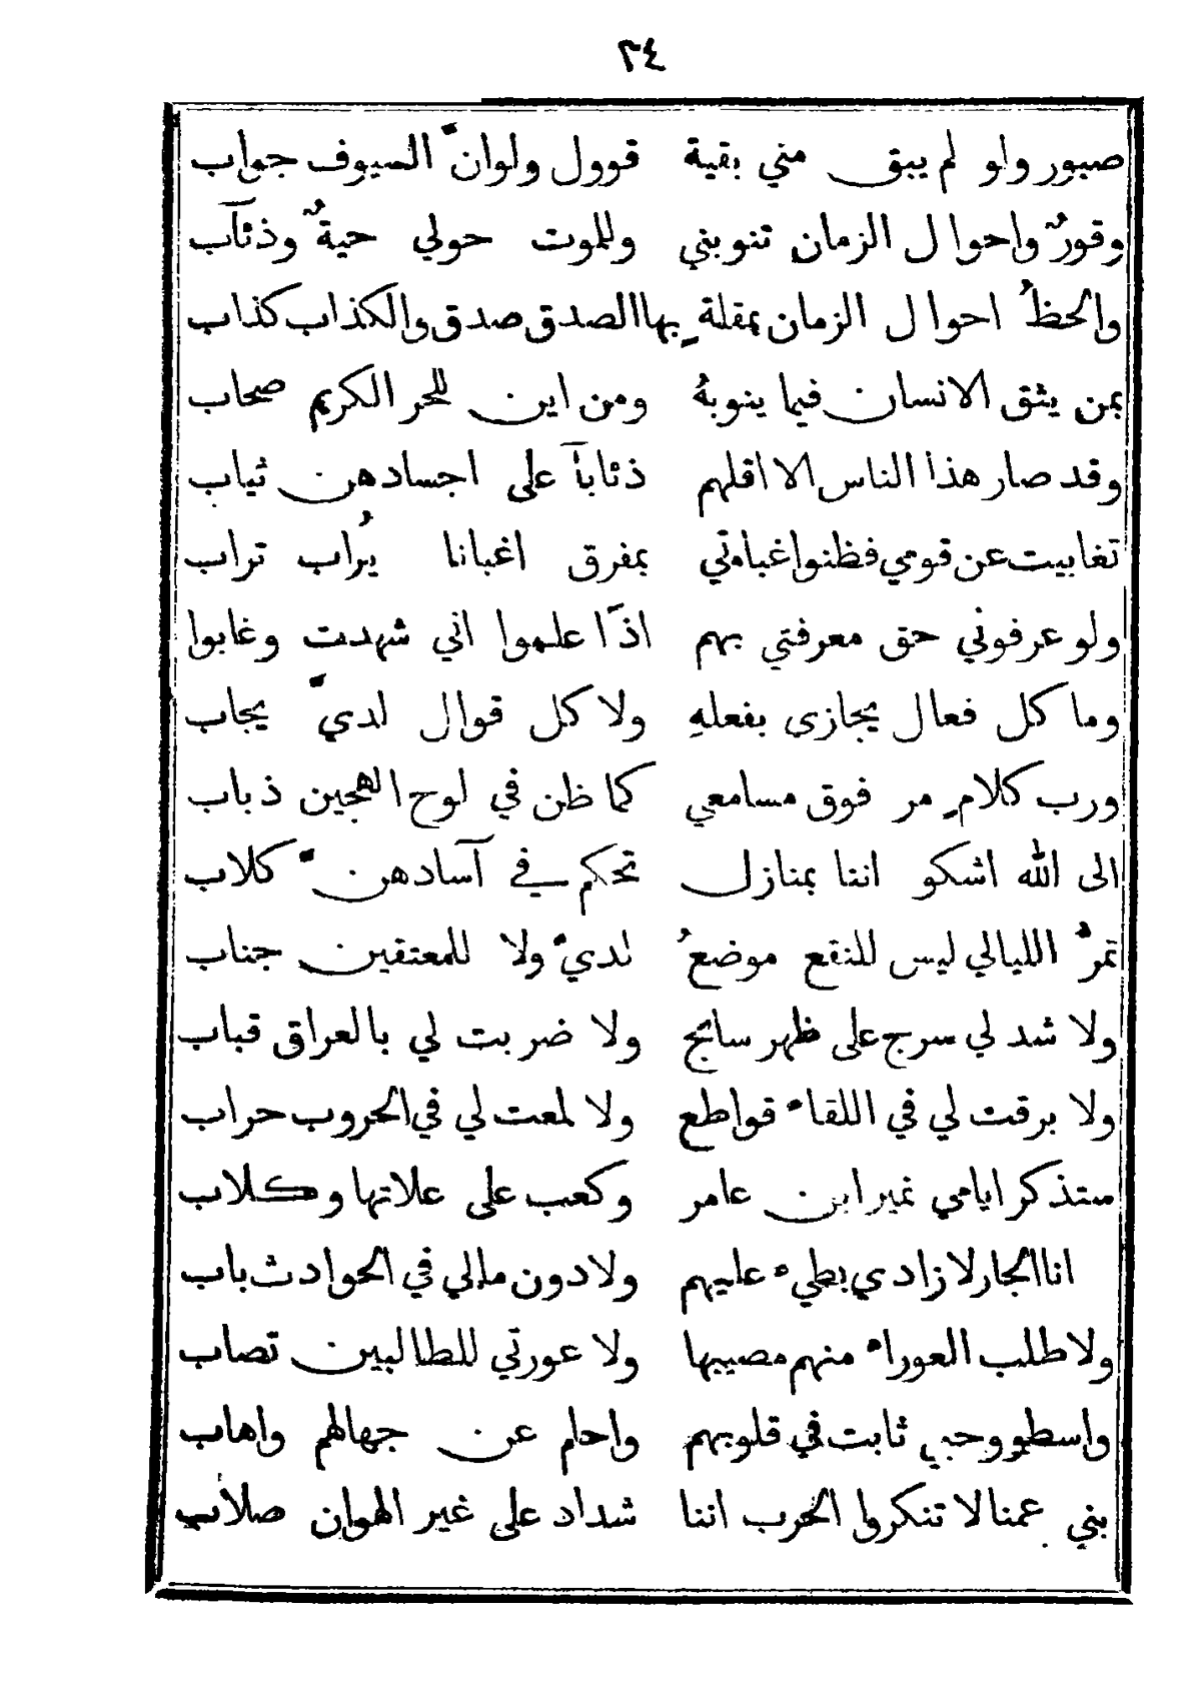 ٢٤
صبور ولو لم يبق مني بقية قوول ولوانّ السيوف جواب
وقورٌ واحوال الزمان تنوبني وللموت حولي حيةٌ وذئآب
والحظُ احوال الزمان بمقلةٍ بها الصدق صدق والكذاب كذاب
بمن يثق الانسان فيما ينوبهُ ومن اين للحر الكريم صحاب
وقد صار هذا الناس الا اقلهم ذئاباً على اجسادهن ثياب
تغابيت عن قومي فظنوا غباوتي بمفرق اغبانا يُراب تراب
ولو عرفوني حق معرفتي بهم اذًا علموا اني شهدت وغابوا
وما كل فعال يجازى بفعلهِ ولا كل قوال لديّ يجاب
ورب كلامٍ مر فوق مسامعي كما ظن في لوح الهجين ذباب
الى الله اشكو اننا بمنازل تحكم في آسادهنّ كلاب
تمرُّ الليالي ليس للنقع موضعُ لديّ ولا للمعتقين جناب
ولا شد لي سرج على ظهر سابح ولا ضربت لي بالعراق قباب
ولا برقت لي في اللقاء قواطع ولا لمعت لي في الحروب حراب
ستذكر ايامي نمير ابن عامر وكعب على علاتها وكلاب
انا الجار لا زادي بطيء عليهم ولا دون مالي في الحوادث باب
ولا طلب العوراء منهم مصيبها ولا عورتي للطالبين تصاب
واسطو وحبي ثابت في قلوبهم واحلم عن جهالهم واهاب
بني عمنا لا تنكروا الحرب اننا شداد على غير الهوان صلاب